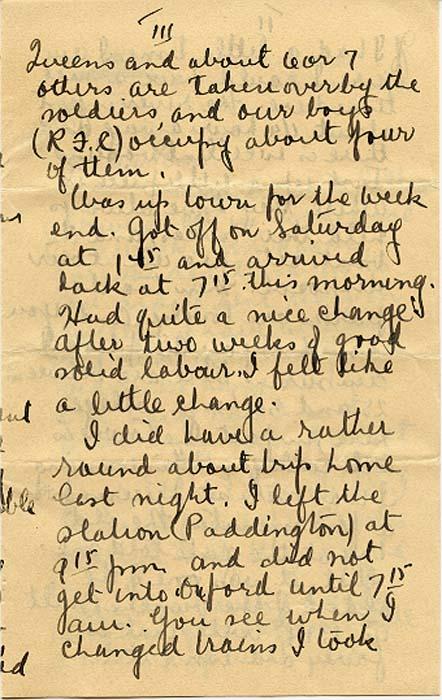 III
Queens and about 6 or 7
others are taken over by the
soldiers, and our boys
(R.F.C) occupy about four
of them.
Was up town for the week
end. Got off on Saturday
at 1 45 and arrived
back at 7 15 this morning.
Had quite a nice change
after two weeks of good
solid labour. I felt like
a little change.
I did have a rather
round about trip home
last night. I left the
station (Paddington) at
9 15 p.m. and did not
get into Oxford until 7 15
a.m. You see when I
changed trains I took